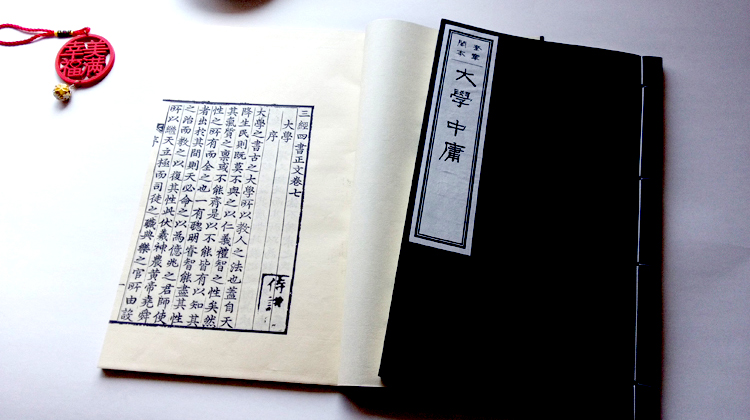 美满
幸福
奎章
閣本
大學 中庸
三經四書正文卷七
大學
序
大學之書古之大學所以教人之法也蓋自天
降生民則既莫不與之以仁義禮智之性矣然
其氣質之稟或不能齊是以不能皆有以知其
性之所有而全之也一有聰明睿智能盡其性
者出於其間則天必命之以爲億兆之君師使
之治而教之以復其性此伏羲神農黃帝堯舜
所以繼天立極而司徒之職典樂之官所由設
序
一